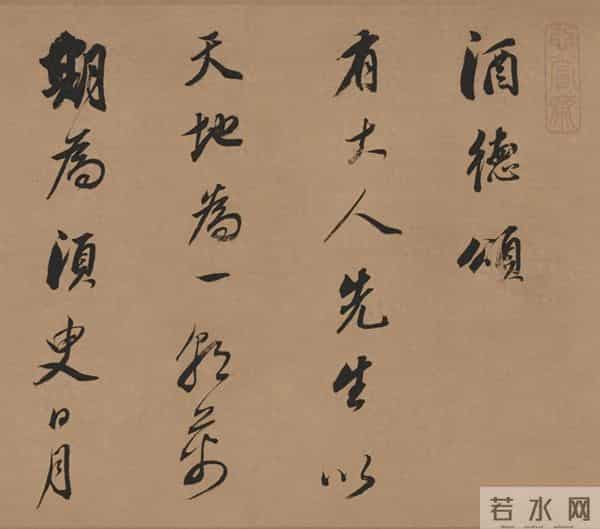 酒德頌
有大人先生以
天地為一朝萬
期為須臾日月
若水网